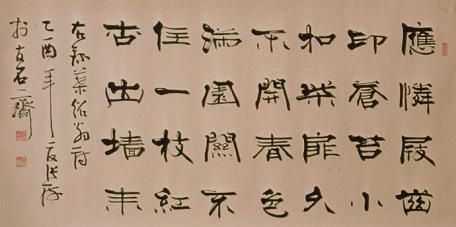 應憐屐齒
印蒼苔小
扣柴扉久
不開春色
滿園關不
住一枝紅
杏出墙来
右録葉紹翁詩
乙酉年
於古石